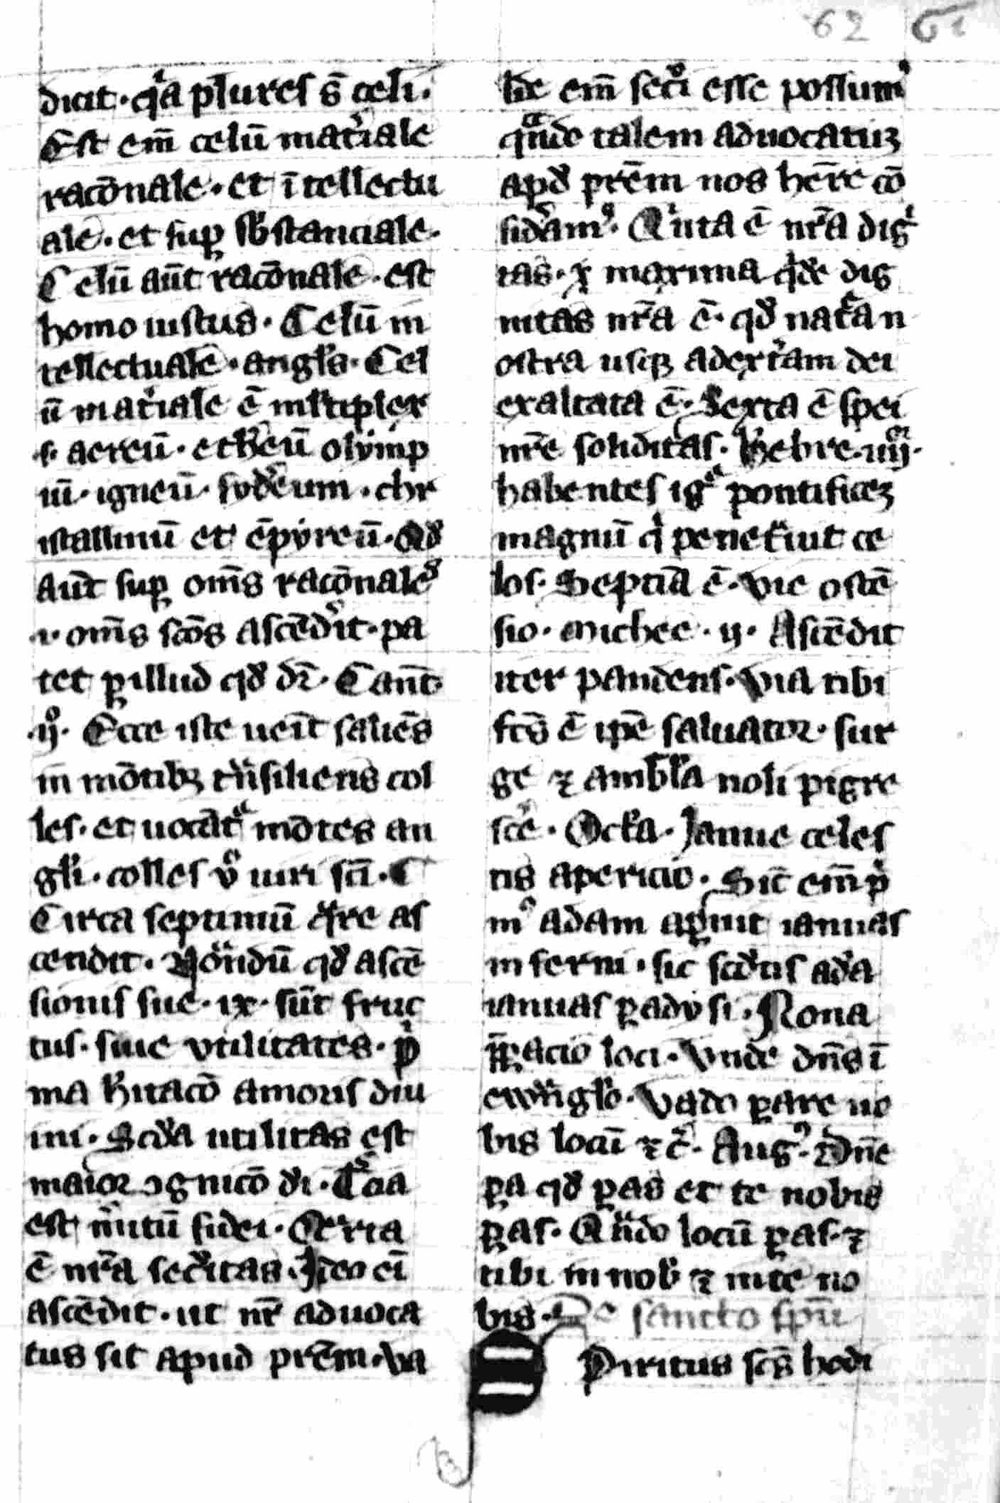 62 61
dicit · qͥa plures s̄ celi ·
Est em̄ celū matͥiale
rac̄onale · et ī tellectu
ale · et suꝑ sb̓stanciale ·
Celū aūt rac̄onale · est
homo iustus · Celū in
tellectuale · angl̓s · Cel
ū matͥiale ē ml̓tiplex
· s · aereū · eth̓eū olymp
iū · igneū · syd̓eum · chr
istallinū et ēpyreū · Qđ
aūt suꝑ om̄s rac̄onales
· i · om̄s sc̄os ascēd̓it · pa
tet ꝑ illud qđ dr̄ · Cant̄
· ijͦ · Ecce iste ueīt saliēs
in mōtibꝫ tͣnsiliens col
les · et uocātͬ mōtes an
gl̓i · colles v̊ uiri sc̄i · C
Circa septimū q̄re as
cendit · Notͣndū qđ ascē
sionis sue · ix · sūt fruc
tus · siue vtilitates · pͥ
ma h̓itac̄o amoris diu
ini · Scd̓a utilitas est
maior ꝯgnic̄o di · Tͨia
est mͥitū fidei · Qͣrta
ē nr̄a secͥitas · Ideo eī
ascēdit · ut nr̄ aduoca
tus sit apud prēm · Va
lde em̄ secͥi esse possumꝰ
qͣndo talem aduocatuꝫ
apđ prēm nos hēre cō
sid̓amꝰ · Qͥnta ē nr̄a digͥ
tas · ⁊ maxima qͥde dig
nitas nr̄a ē · qđ natͬa n
ostra usqꝫ ad extͬam dei
exaltata ē · Sexta ē spei
nr̄e soliditas · Hebre · iiij ·
habentes igͬ pontificeꝫ
magnū qͥ penetͬiut ce
los · Septīa ē · vie ostē
sio · Michee · ij · Ascēdit
iter pandens · Via tibi
fcs̄ ē ip̄e saluator · sur
ge ⁊ ambl̓a noli pigre
sc̓e · Octͣa · Ianue celes
tis apericio · Sic̄ em̄ pͥ
mꝰ adam apͥuit ianuas
inferni · sic scd̓us ad̓a
ianuas ꝑadysi · Nona
p̄ꝑacio loci · Vnde dn̄s ī
ewͣngl̓o · Vado ꝑare uo
bis locū ⁊ c̄ · Augꝰ · Dn̄e
ꝑa qđ ꝑas et te nobis
ꝑas · Qͣndo locū ꝑas · ⁊
tibi in nob̓ ⁊ in te no
bis · De sancto sp̄u
Spiritus sc̄s hodi